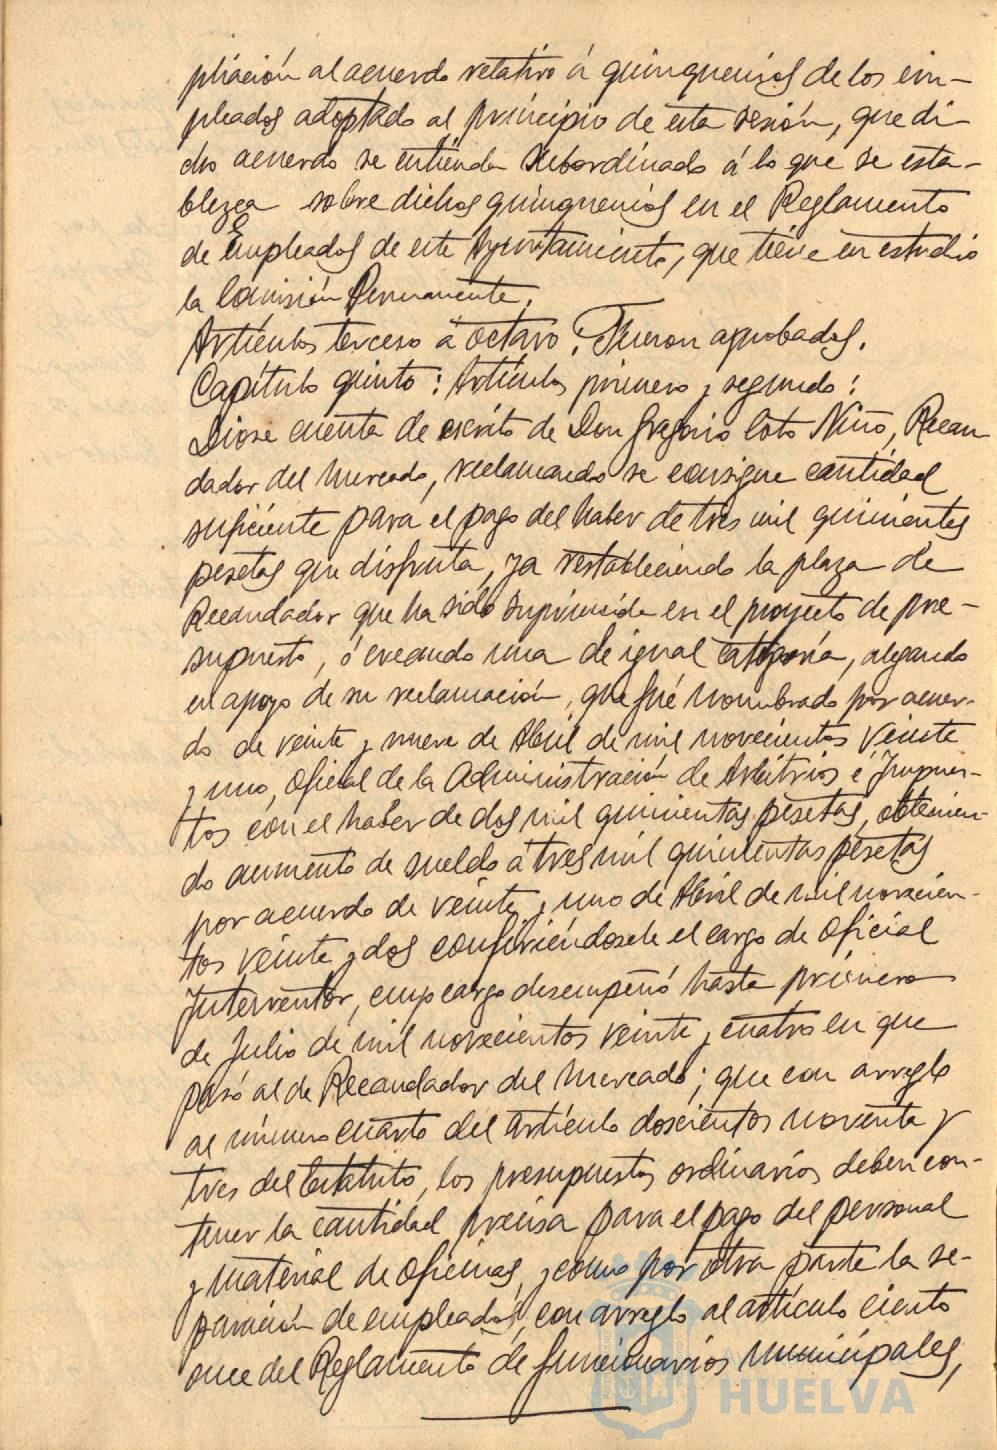 pliación al acuerdo relativo á quinquenios de los em-
pleados adoptado al principio de esta sesión, que di-
cho acuerdo se entienda subordinado á lo que se esta-
blezca sobre dichos quinquenios en el Reglamento
de Empleados de este Ayuntamiento, que tiene en estudio
la Comisión Permanente.
Artículos tercero á octavo: Fueron aprobados.
Capítulo quinto: Artículos primero y segundo:
Diose cuenta de escrito de Don Gregorio Coto Niño, Recau
dador del Mercado, reclamando se consigne cantidad
suficiente para el pago del haber de tres mil quinientas
pesetas que disfruta, ya restableciendo la plaza de
Recaudador que ha sido suprimida en el proyecto de pre-
supuesto, ó creando una de igual categoría, alegando
en apoyo de su reclamación, que fué nombrado por acuer-
do de veinte y nueve de Abril de mil novecientos veinte
y uno, Oficial de la Administración de Arbitrios é Impues-
tos con el haber de dos mil quinientas pesetas, obtenien-
do aumento de sueldo á tres mil quinientas pesetas
por acuerdo de veinte y uno de Abril de mil novecien-
tos veinte y dos confiriéndosele el cargo de Oficial
Interventor, cuyo cargo desempeñó hasta primero
de Julio de mil novecientos veinte y cuatro en que
pasó al de Recaudador del Mercado; que con arreglo
al número cuarto del artículo doscientos noventa y
tres del Estatuto, los presupuestos ordinarios deben con-
tener la cantidad precisa para el pago del personal
y material de oficinas, y como por otra parte la se-
paración de empleados, con arreglo al artículo ciento
once del Reglamento de funcionarios municipales,
HUELVA